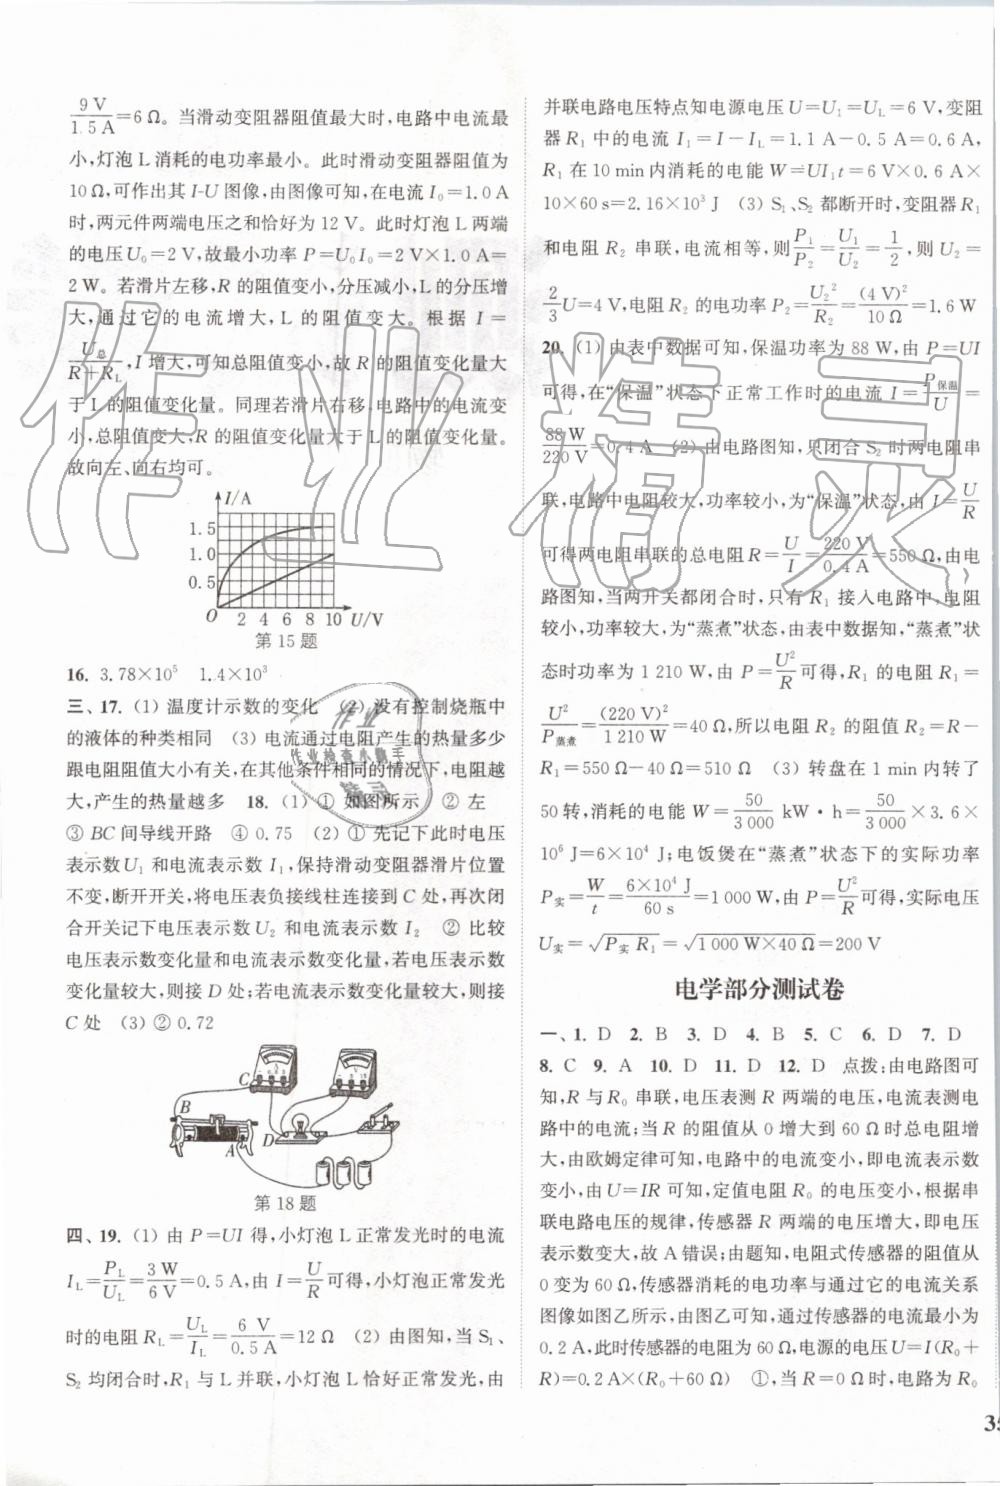 9 V/1.5 A=6 Ω。当滑动变阻器阻值最大时,电路中电流最
小,灯泡 L 消耗的电功率最小。此时滑动变阻器阻值为
10 Ω,可作出其 I-U 图像,由图像可知,在电流 I₀=1.0 A
时,两元件两端电压之和恰好为 12 V。此时灯泡 L 两端
的电压 U₀=2 V,故最小功率 P=U₀I₀=2 V×1.0 A=
2 W。若滑片左移,R 的阻值变小,分压减小,L 的分压增
大,通过它的电流增大,L 的阻值变大。根据 I=
U总/(R+R_L),I 增大,可知总阻值变小,故 R 的阻值变化量大
于 L 的阻值变化量。同理若滑片右移,电路中的电流变
小,总阻值变大,R 的阻值变化量大于 L 的阻值变化量。
故向左、向右均可。
I/A
1.5
1.0
0.5
O 2 4 6 8 10 U/V
第 15 题
16. 3.78×10⁵ 1.4×10³
三、17. (1) 温度计示数的变化 (2) 没有控制烧瓶中
的液体的种类相同 (3) 电流通过电阻产生的热量多少
跟电阻阻值大小有关,在其他条件相同的情况下,电阻越
大,产生的热量越多 18. (1) ① 如图所示 ② 左
③ BC 间导线开路 ④ 0.75 (2) ① 先记下此时电压
表示数 U₁ 和电流表示数 I₁,保持滑动变阻器滑片位置
不变,断开开关,将电压表负接线柱连接到 C 处,再次闭
合开关记下电压表示数 U₂ 和电流表示数 I₂ ② 比较
电压表示数变化量和电流表示数变化量,若电压表示数
变化量较大,则接 D 处;若电流表示数变化量较大,则接
C 处 (3) ② 0.72
C
B
D
A
第 18 题
四、19. (1) 由 P=UI 得,小灯泡 L 正常发光时的电流
I_L=P_L/U_L=3 W/6 V=0.5 A,由 I=U/R 可得,小灯泡正常发光
时的电阻 R_L=U_L/I_L=6 V/0.5 A=12 Ω (2) 由图知,当 S₁、
S₂ 均闭合时,R₁ 与 L 并联,小灯泡 L 恰好正常发光,由
并联电路电压特点知电源电压 U=U₁=U_L=6 V,变阻
器 R₁ 中的电流 I₁=I-I_L=1.1 A-0.5 A=0.6 A,
R₁ 在 10 min 内消耗的电能 W=UI₁t=6 V×0.6 A×
10×60 s=2.16×10³ J (3) S₁、S₂ 都断开时,变阻器 R₁
和电阻 R₂ 串联,电流相等,则 P₁/P₂=U₁/U₂=1/2,则 U₂=
2/3 U=4 V,电阻 R₂ 的电功率 P₂=U₂²/R₂=(4 V)²/10 Ω=1.6 W
20. (1) 由表中数据可知,保温功率为 88 W,由 P=UI
可得,在“保温”状态下正常工作时的电流 I=P保温/U=
88 W/220 V=0.4 A (2) 由电路图知,只闭合 S₂ 时两电阻串
联,电路中电阻较大,功率较小,为“保温”状态,由 I=U/R
可得两电阻串联的总电阻 R=U/I=220 V/0.4 A=550 Ω,由电
路图知,当两开关都闭合时,只有 R₁ 接入电路中,电阻
较小,功率较大,为“蒸煮”状态,由表中数据知,“蒸煮”状
态时功率为 1 210 W,由 P=U²/R 可得,R₁ 的电阻 R₁=
U²/P蒸煮=(220 V)²/1 210 W=40 Ω,所以电阻 R₂ 的阻值 R₂=R-
R₁=550 Ω-40 Ω=510 Ω (3) 转盘在 1 min 内转了
50 转,消耗的电能 W=50/3 000 kW·h=50/3 000×3.6×
10⁶ J=6×10⁴ J;电饭煲在“蒸煮”状态下的实际功率
P实=W/t=6×10⁴ J/60 s=1 000 W,由 P=U²/R 可得,实际电压
U实=√(P实 R₁)=√(1 000 W×40 Ω)=200 V
电学部分测试卷
一、1. D 2. B 3. D 4. B 5. C 6. D 7. D
8. C 9. A 10. D 11. D 12. D 点拨:由电路图可
知,R 与 R₀ 串联,电压表测 R 两端的电压,电流表测电
路中的电流;当 R 的阻值从 0 增大到 60 Ω 时总电阻增
大,由欧姆定律可知,电路中的电流变小,即电流表示数
变小,由 U=IR 可知,定值电阻 R₀ 的电压变小,根据串
联电路电压的规律,传感器 R 两端的电压增大,即电压
表示数变大,故 A 错误;由题知,电阻式传感器的阻值从
0 变为 60 Ω,传感器消耗的电功率与通过它的电流关系
图像如图乙所示,由图乙可知,通过传感器的电流最小为
0.2 A,此时传感器的电阻为 60 Ω,电源的电压 U=I(R₀+
R)=0.2 A×(R₀+60 Ω) ①,当 R=0 Ω 时,电路为 R₀
35
作业精灵
作业
作业检查小助手
精灵